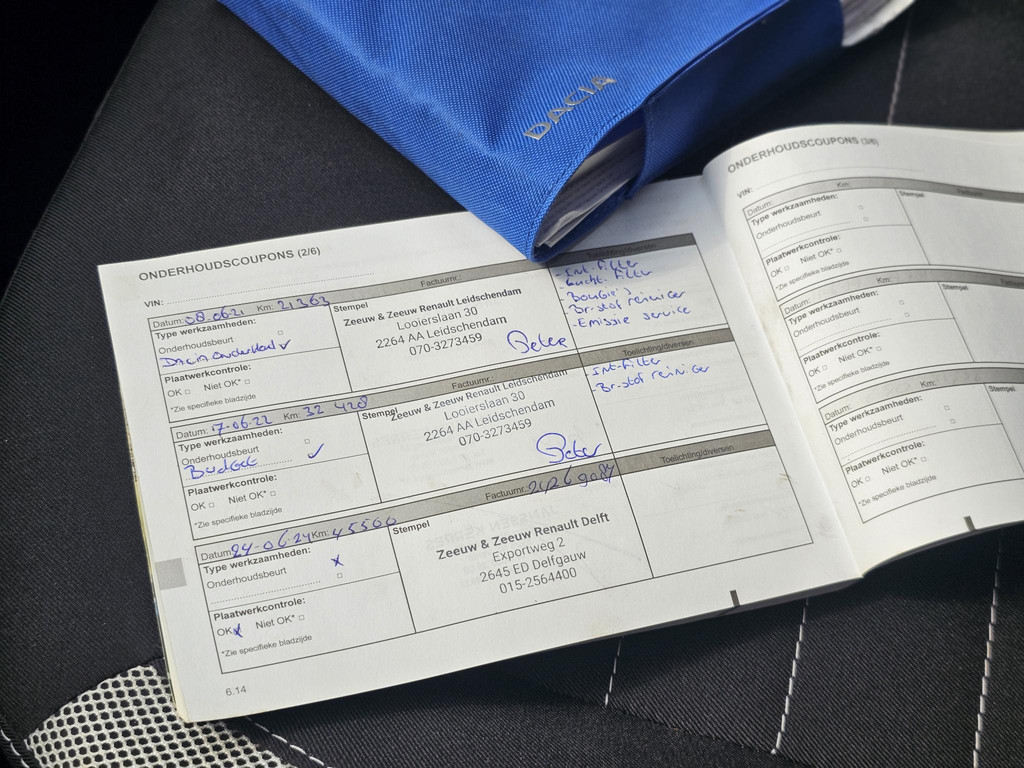 DACIA
ONDERHOUDSCOUPONS (2/6)
VIN:
Factuurnr.:
Toelichting/diversen
Datum: 08-06-21 Km: 21363
Stempel
Type werkzaamheden:
Onderhoudsbeurt
Dacia onderhoud
Plaatwerkcontrole:
OK Niet OK*
*Zie specifieke bladzijde
Zeeuw & Zeeuw Renault Leidschendam
Looierslaan 30
2264 AA Leidschendam
070-3273459
Peter
- Int-filter
- Lucht-filter
- Bougie's
- Br-stof reiniger
- Emissie service
Factuurnr.:
Toelichting/diversen
Datum: 17-06-22 Km: 32 428
Stempel
Type werkzaamheden:
Onderhoudsbeurt
Budget
Plaatwerkcontrole:
OK Niet OK*
*Zie specifieke bladzijde
Zeeuw & Zeeuw Renault Leidschendam
Looierslaan 30
2264 AA Leidschendam
070-3273459
Peter
- Int-filter
- Br-stof reiniger
Factuurnr.:
Toelichting/diversen
Datum: 24-06-24 Km: 45566
Stempel
Type werkzaamheden:
Onderhoudsbeurt x
Plaatwerkcontrole:
OK x Niet OK*
*Zie specifieke bladzijde
Zeeuw & Zeeuw Renault Delft
Exportweg 2
2645 ED Delfgauw
015-2564400
6.14
ONDERHOUDSCOUPONS (3/6)
VIN:
Datum: Km:
Stempel
Type werkzaamheden:
Onderhoudsbeurt
Plaatwerkcontrole:
OK Niet OK*
*Zie specifieke bladzijde
Datum: Km:
Stempel
Type werkzaamheden:
Onderhoudsbeurt
Plaatwerkcontrole:
OK Niet OK*
*Zie specifieke bladzijde
Datum: Km:
Stempel
Type werkzaamheden:
Onderhoudsbeurt
Plaatwerkcontrole:
OK Niet OK*
*Zie specifieke bladzijde